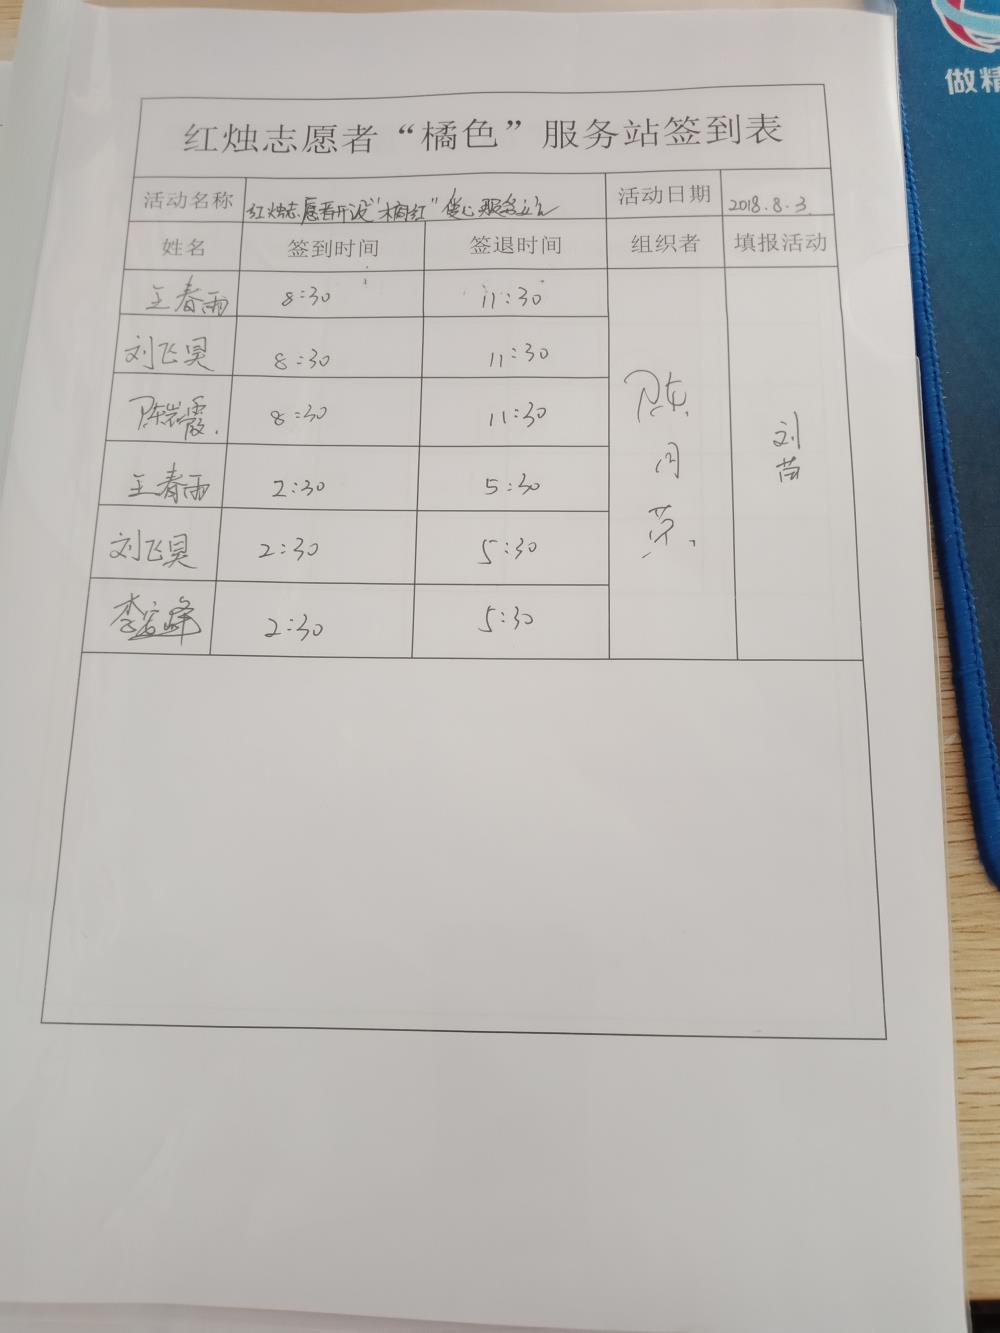 做精
红烛志愿者“橘色”服务站签到表
活动名称 红烛志愿者开设“橘红”爱心服务站 活动日期 2018.8.3.
姓名 签到时间 签退时间 组织者 填报活动
王春雨 8:30 11:30
刘飞昊 8:30 11:30
陈岩霞. 8:30 11:30
王春雨 2:30 5:30
刘飞昊 2:30 5:30
李 峰 2:30 5:30
陈
月
刘
苗